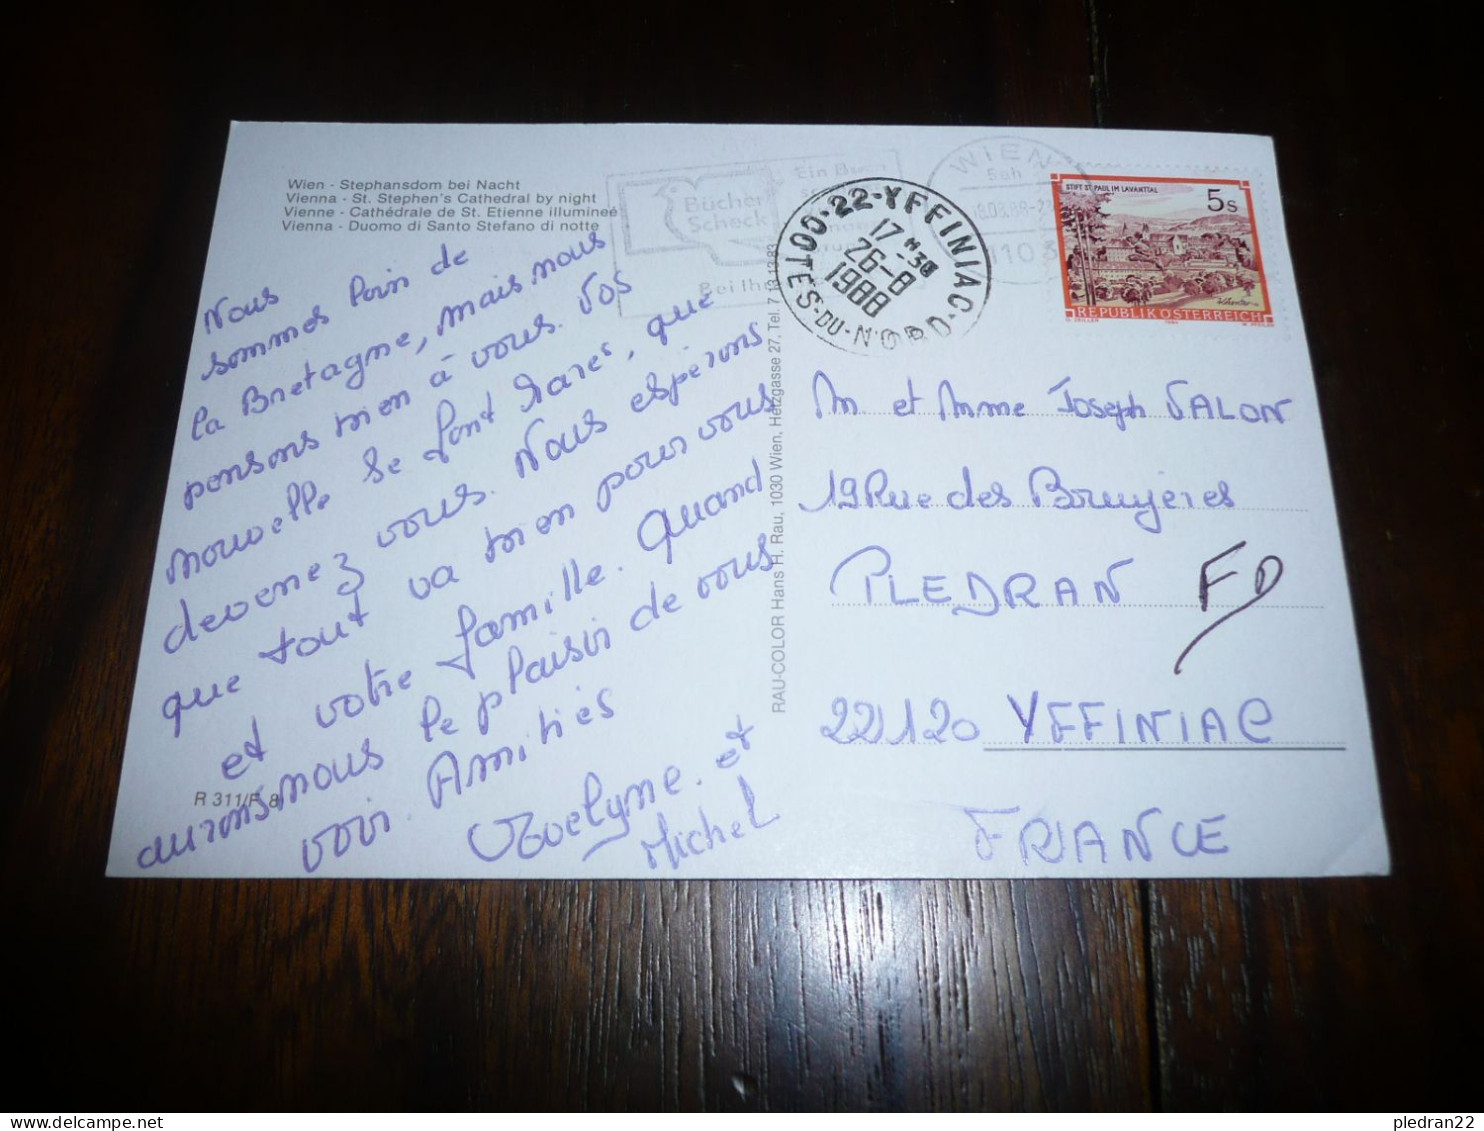 Wien - Stephansdom bei Nacht
Vienna - St. Stephen's Cathedral by night
Vienne - Cathédrale de St. Etienne illumineé
Vienna - Duomo di Santo Stefano di notte
Nous
sommes loin de
la Bretagne, mais nous
pensons bien à vous. Vos
nouvelle se font rares, que
devenez vous. Nous espérons
que tout va bien pour vous
et votre famille. Quand
aurons nous le plaisir de vous
voir. Amitiés
Evelyne et
Michel
R 311/F 8
RAU-COLOR Hans H. Rau, 1030 Wien, Hetzgasse 27, Tel. 7 13 13 83
Bücher
Scheck
Ein Buch
Bei Ih
WIEN
1103
22-YFFINIAC
17 H 30
26-8
1988
COTES-DU-NORD
STIFT ST. PAUL IM LAVANTTAL
5s
REPUBLIK ÖSTERREICH
M et Mme Joseph VALON
19 Rue des Bruyeres
PLEDRAN FD
22120 YFFINIAC
FRANCE
pledran22